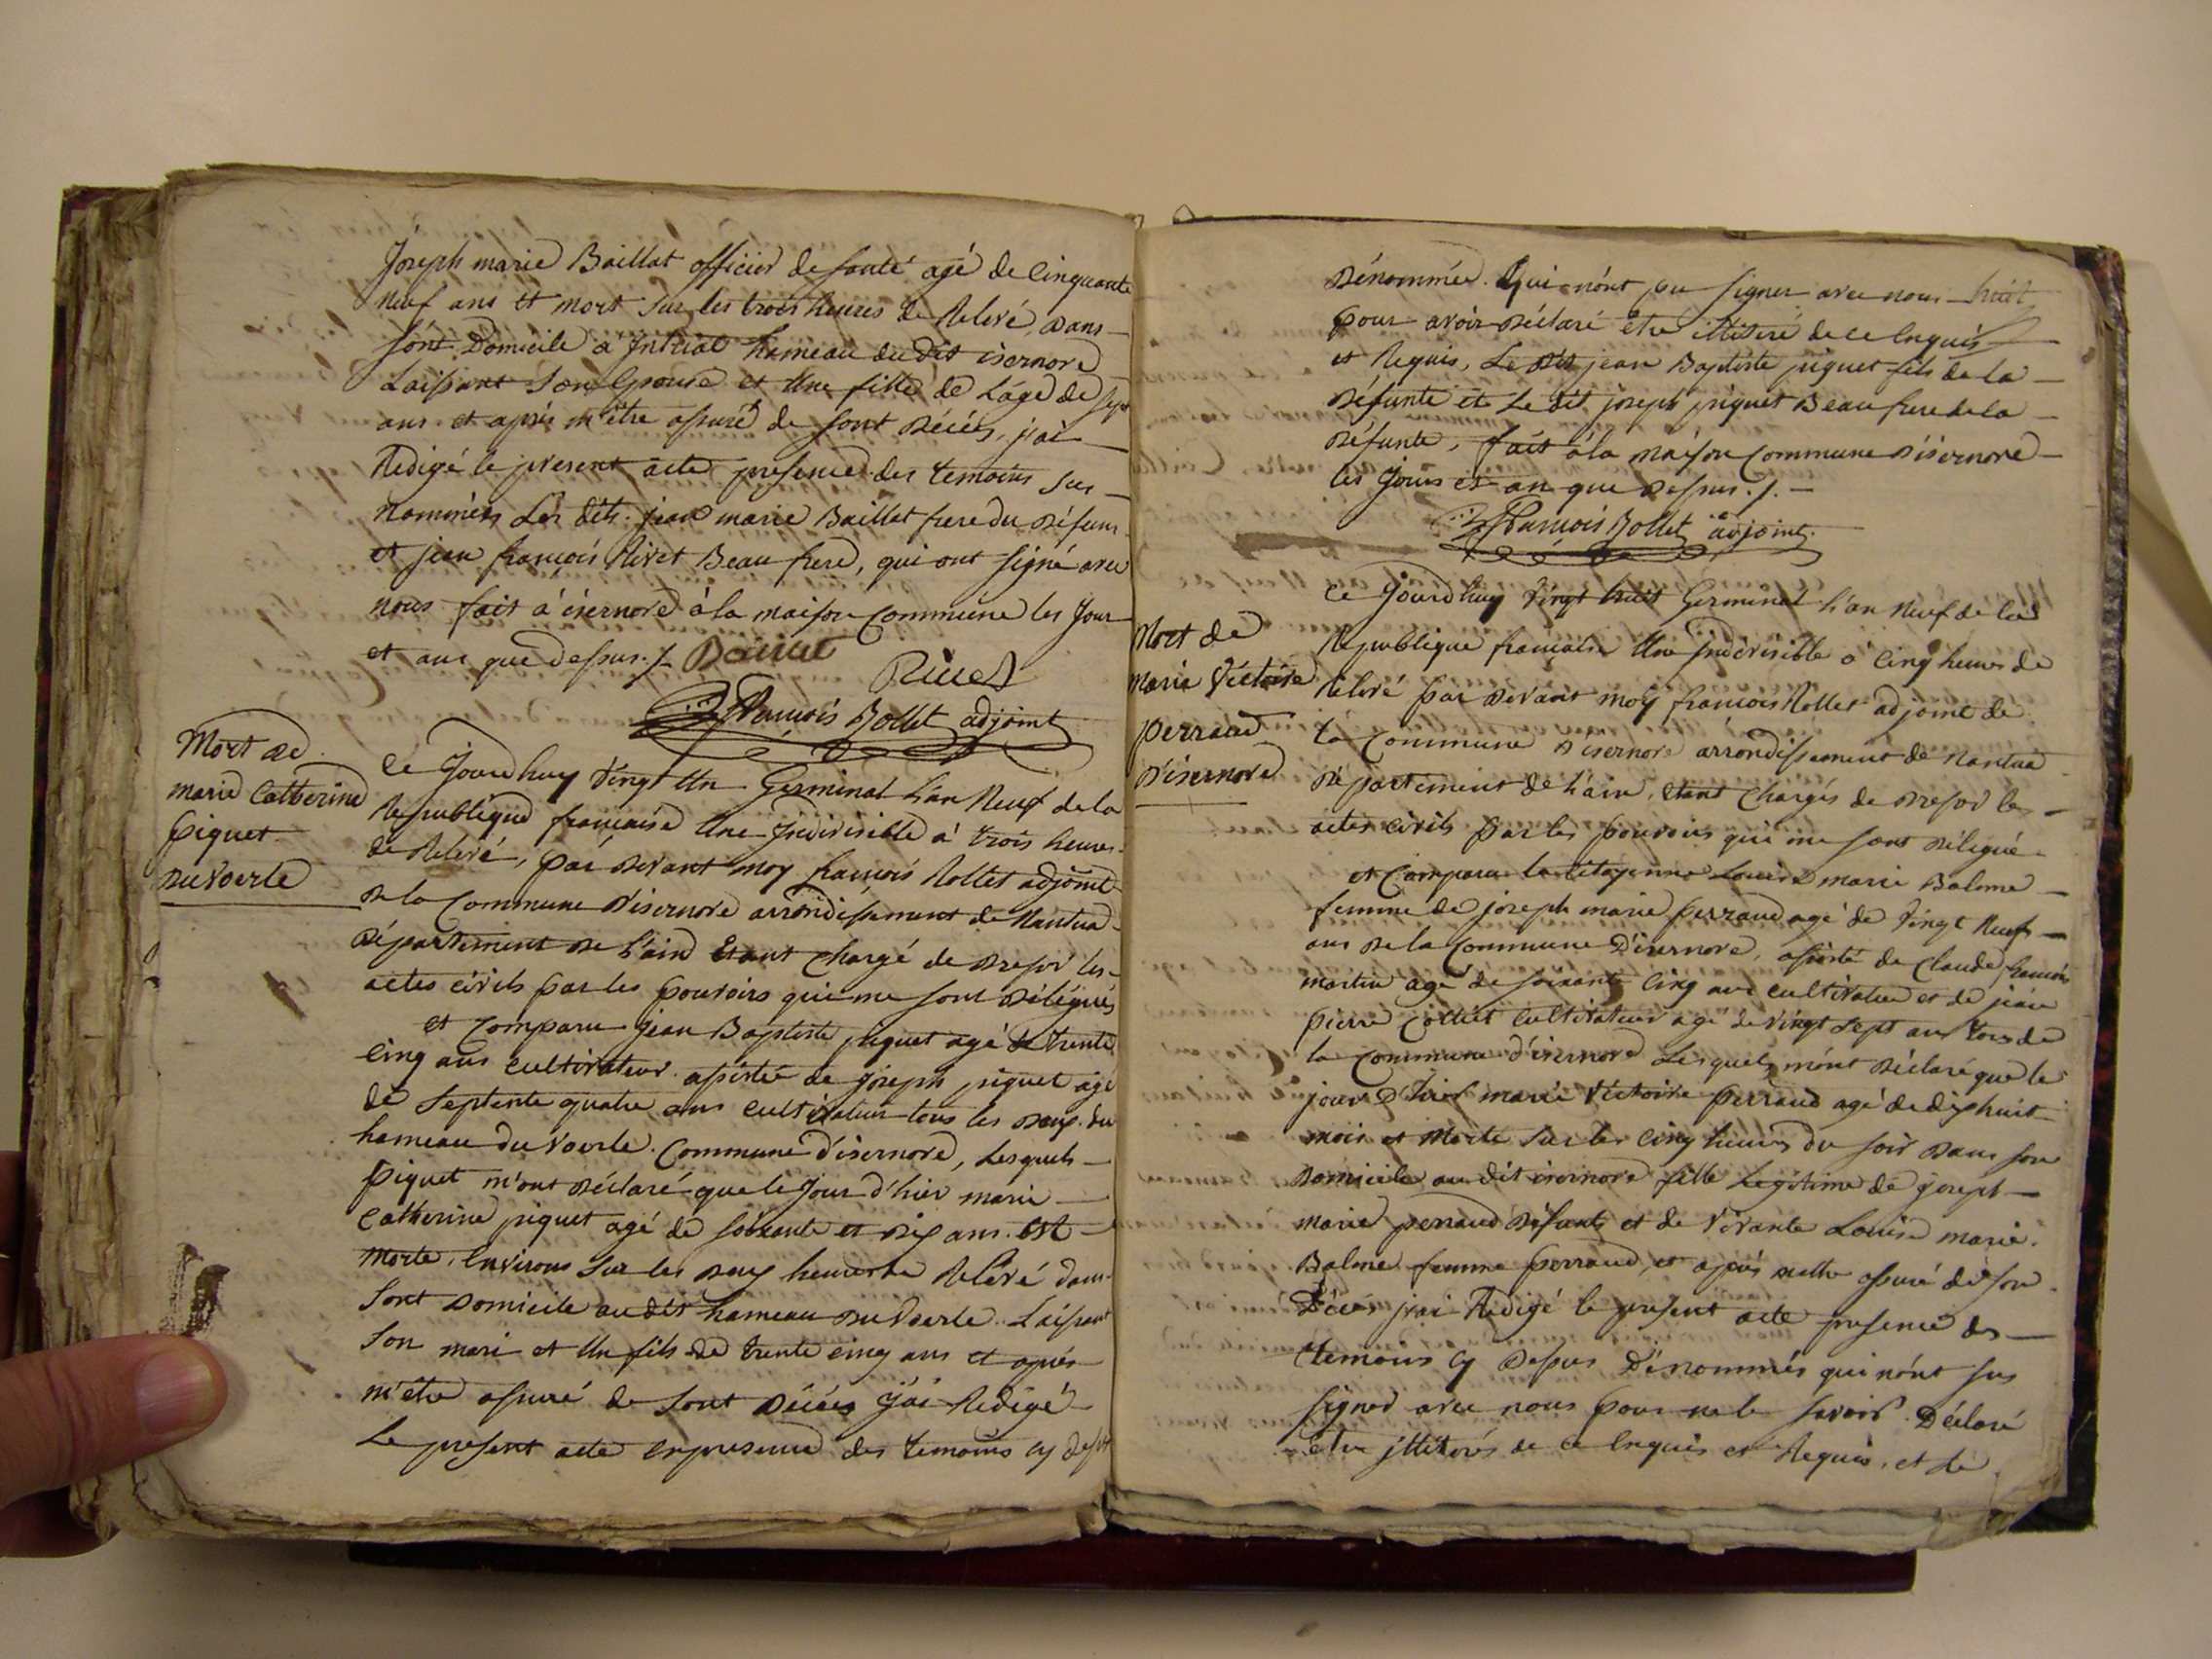 Joseph marie Baillat officier de santé agé de Cinquante
neuf ans et mort sur les trois heures de Relevé, Dans
sont Domicile a Intriat hameau du dit isernore
Laissant son Epouse et Une fille de L'age de sept
ans et aprés m'être assuré de sont Décés, j'ai
Redigé le present acte presence des temoins sus
nommées Les dits jean marie Baillat frere du Défunt
et jean françois Rivet Beau frere, qui ont signé avec
nous fait a isernore à la maison Commune les Jour
et ans que Dessus ./.
Rivet
François Rollet adjoint
Mort de
marie Catherine
piguet
du Voerle
Ce Jourd huy Vingt Un Germinal L'an Neuf de la
Republique française Une Indivisible à trois heures
de Relevé, par Devant moy françois Rollet adjoint
De la Commune D'isernore arrondissement de Nantua
Département De L'ain Etant Chargé de Dresser les
actes civils par les pouvoirs qui me sont Délégués
et Comparu Jean Baptiste piguet agé De trente
Cinq ans cultivateur assisté de Joseph piguet agé
de septente quatre ans cultivateur tous les Deux du
hameau du Voerle Commune d'isernore, Lesquels
piguet m'ont Déclaré que le Jour d'hier marie
Catherine piguet agé de soixante et Dix ans Est
Morte, Environs sur les Deux heures de Relevé dans
sont Domicile au dit hameau du Voerle Laissant
son mari et Un fils de trente cinq ans et aprés
m'être assuré de sont Décés j'ai Redigé
Le present acte en presence des temoins cy dessus
Dénommée Qui n'ont pu signer avec nous
pour avoir Déclaré être illitéré de ce Enquis
et Requis, Le Dit jean Baptiste piguet fils de la
Défunte et Le dit joseph piguet Beau frere de la
Défunte, fait à la Maison Commune D'isernore
les Jours et an que Dessus ./.
François Rollet adjoint
Mort de
Marie Victoire
perraud
D'isernore
Ce Jourd huy Vingt huit Germinal L'an Neuf de la
Republique française Une Indivisible a Cinq heures de
Relevé par Devant moy françois Rollet adjoint de
la Commune D'isernore arrondissement de Nantua
Département de L'ain, Etant Chargés de Dresser les
actes civils par les pouvoirs qui me sont Délegué
et Comparu la Citoyenne Louise marie Balme
femme de joseph marie perraud agé de Vingt Neuf
ans De la Commune D'isernore, assisté de Claude françois
martin agé de soixante Cinq ans cultivateur et de jean
pierre Collet cultivateur agé de Vingt sept ans tous de
la Commune d'isernore Lesquels m'ont Déclaré que le
jour D'hier marie Victoire perraud agé de dix huit
mois et Morte sur les Cinq heures du soir Dans son
Domicile au dit isernore fille Legitime de joseph
marie perraud Défunts et de Vivante Louise marie
Balme femme perraud, et après mettre assuré de son
Décés j'ai Redigé le present acte presence des
temoins cy Dessus Dénommés qui n'ont sus
signer avec nous pour ne le savoir Déclaré
être illitérés de ce Enquis et Requis, et le